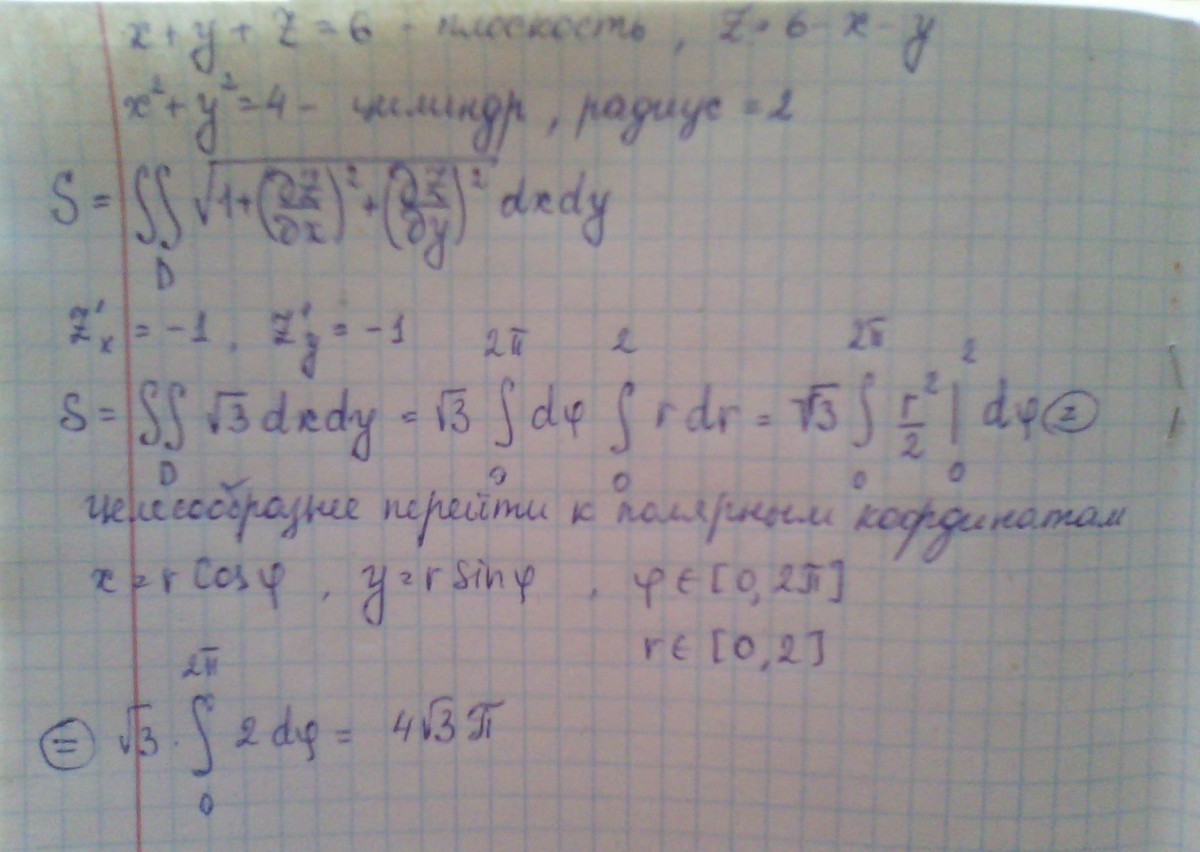 x + y + z = 6 - плоскость, z = 6 - x - y
x² + y² = 4 - цилиндр, радиус = 2
S = ∬_D √(1 + (∂z/∂x)² + (∂z/∂y)²) dxdy
z'ₓ = -1, z'ᵧ = -1
S = ∬_D √3 dxdy = √3 ∫₀^{2π} dφ ∫₀² r dr = √3 ∫₀^{2π} r²/2 |₀² dφ ⊜
целесообразнее перейти к полярным координатам
x = r cos φ, y = r sin φ, φ ∈ [0, 2π]
r ∈ [0, 2]
⊜ √3 · ∫₀^{2π} 2 dφ = 4√3 π